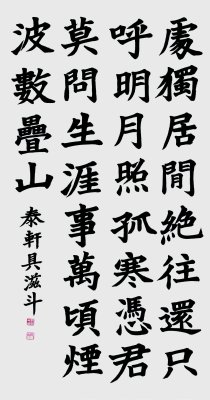 處獨居閒絶往還只
呼明月照孤寒憑君
莫問生涯事萬頃煙
波數疊山
泰軒具滋斗